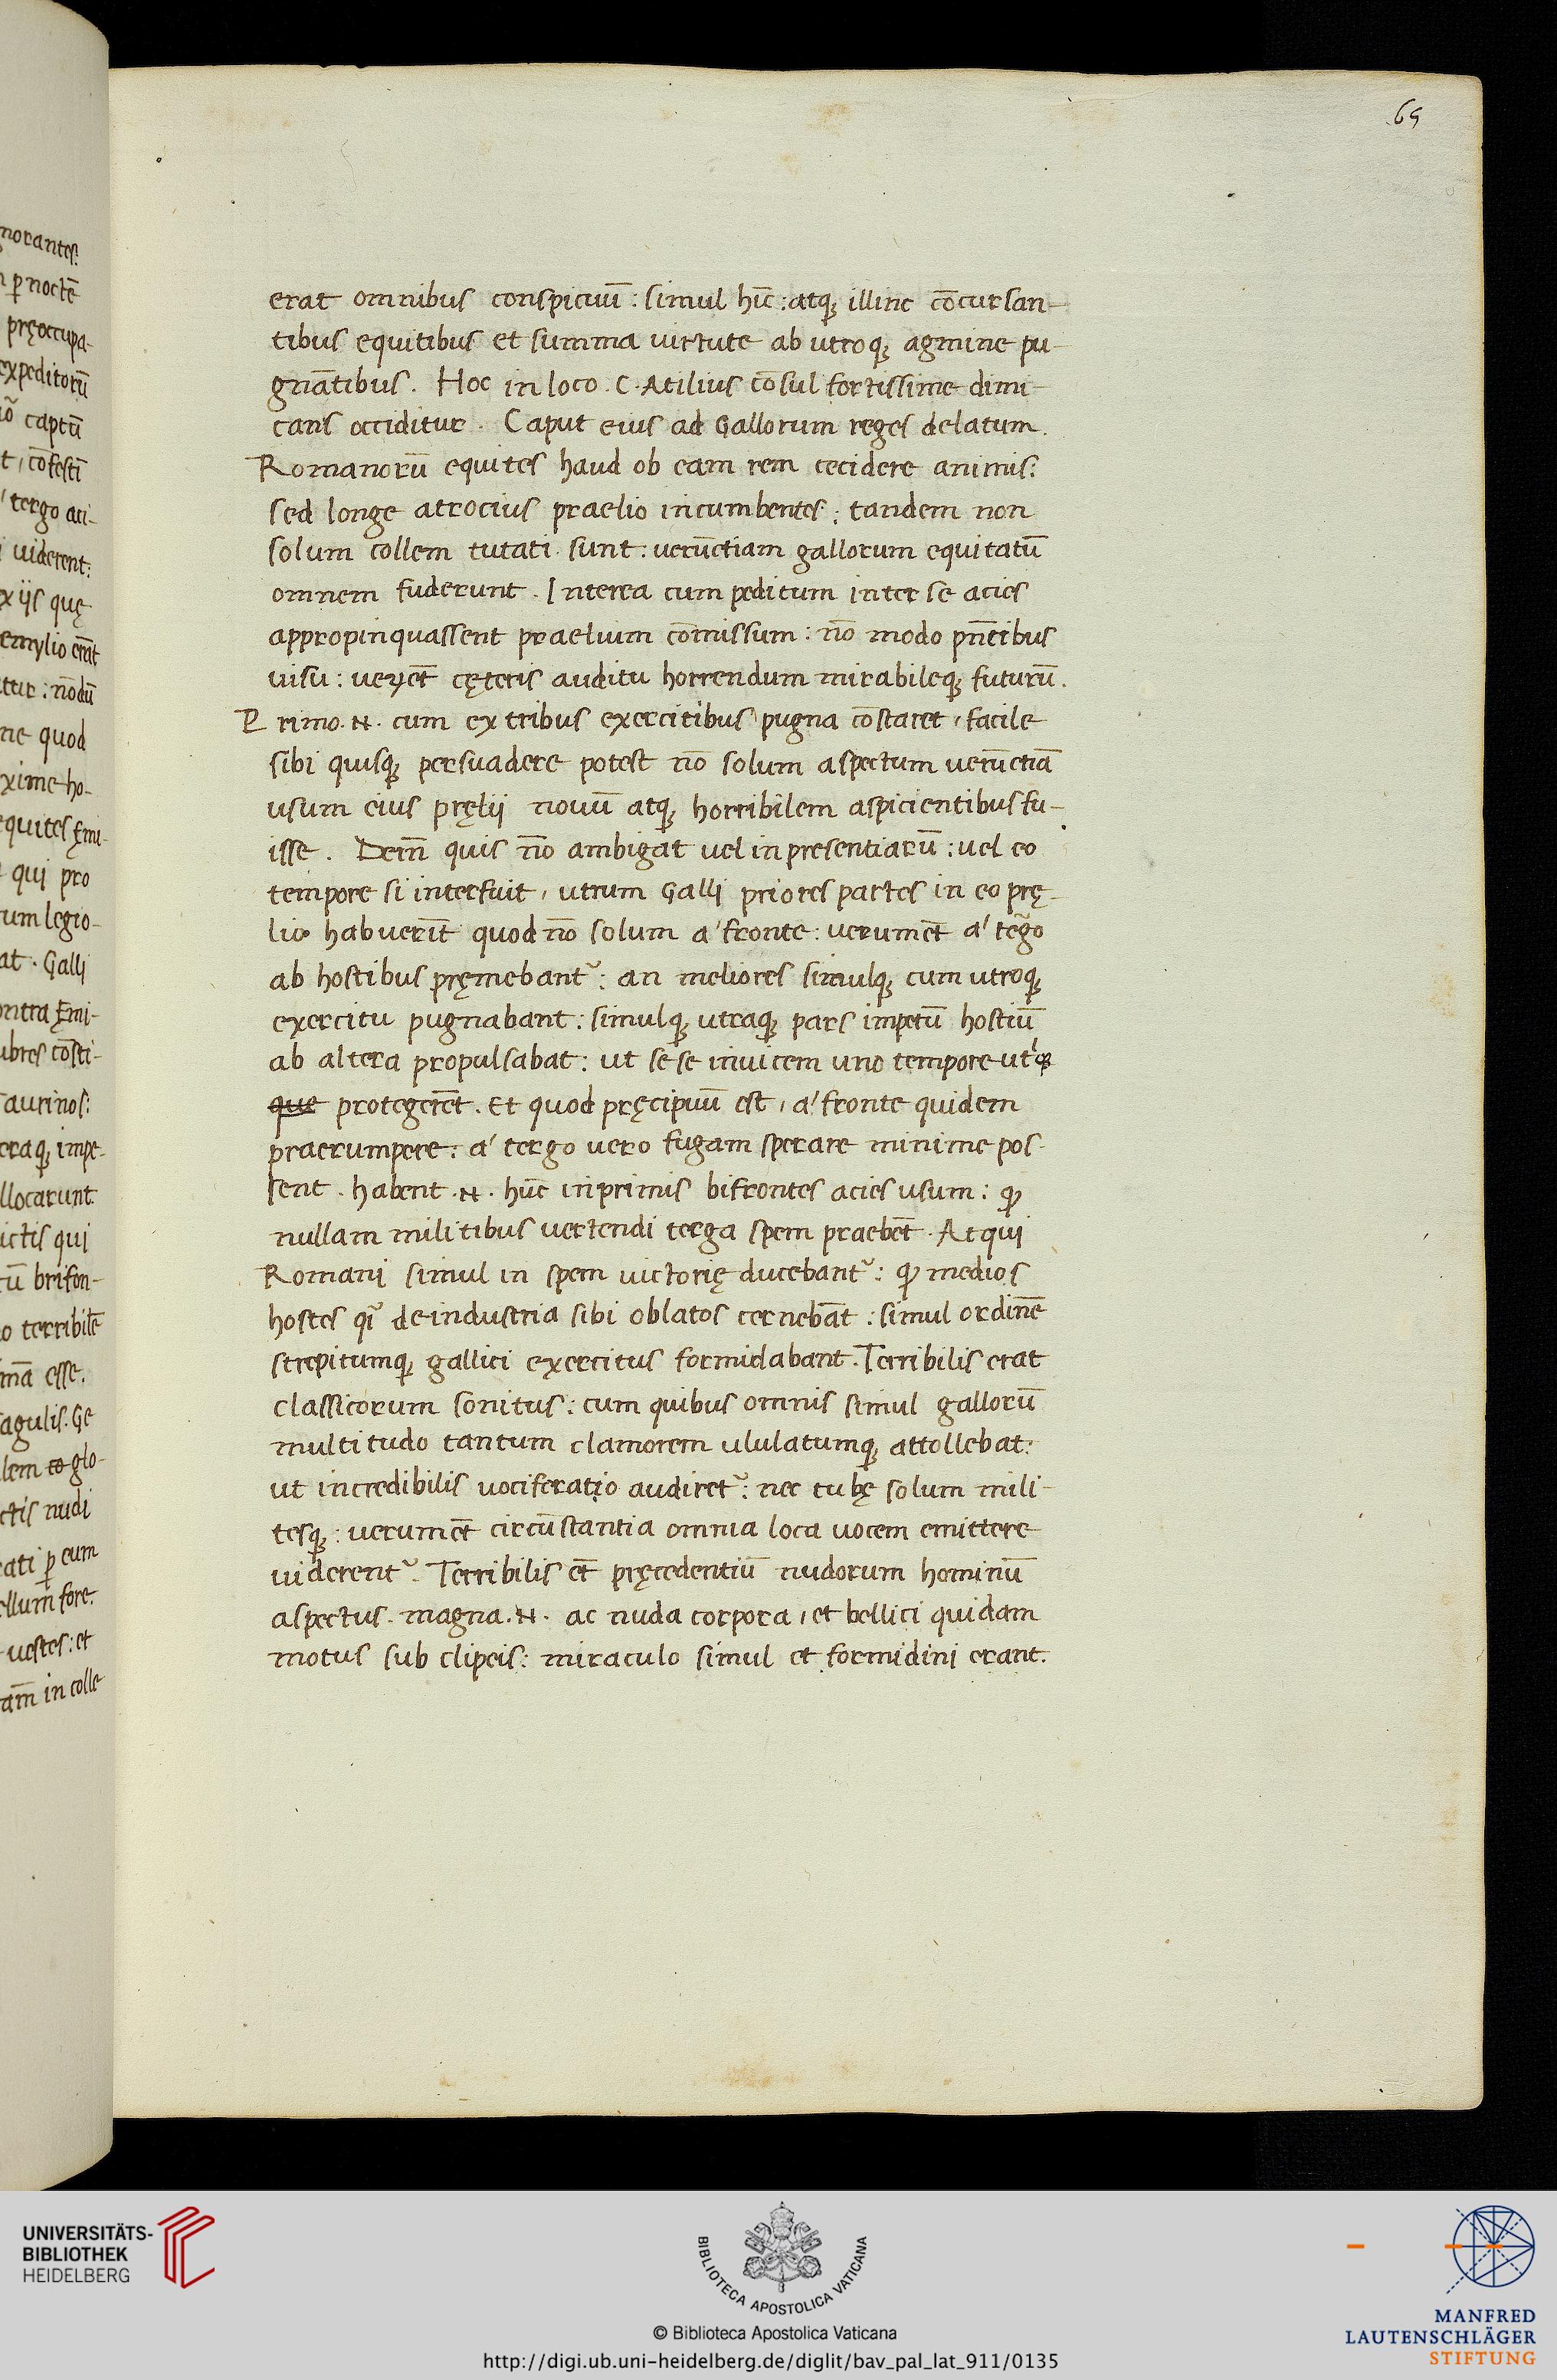 65
erat omnibus conspicuū : simul hīc : atq; illinc cōcursan-
tibus equitibus et summa uirtute ab utroq; agmine pu-
gnātibus. Hoc in loco. C. Atilius cōsul fortissime dimi-
cans occiditur. Caput eius ad Gallorum reges delatum.
Romanorū equites haud ob eam rem cecidere animis:
sed longe atrocius praelio incumbentes: tandem non
solum collem tutati sunt: verūetiam gallorum equitatū
omnem fuderunt. Interea cum peditum inter se acies
appropinquassent praelium cōmissum: nō modo pñtibus
uisu: ueꝝet̄ cęteris auditu horrendum mirabileq; futurū.
Primo. N. cum ex tribus exercitibus pugna cōstaret, facile
sibi quisq; persuadere potest nō solum aspectum uerūetiā
usum eius pręlij nouū atq; horribilem aspicientibus fu-
isse. Dein̄ quis nō ambigat uel inpresentiarū: uel eo
tempore si interfuit, utrum Galli priores partes in eo prę-
lio habuerīt quod nō solum a' fronte: uerumet̄ a' tēgo
ab hostibus pręmebant᷑: an meliores simulq; cum utroq;
exercitu pugnabant: simulq; utraq; pars impetū hostiū
ab altera propulsabat: ut sese inuicem uno tempore
que protegerēt. Et quod pręcipuū est, a' fronte quidem
praerumpere: a' tergo uero fugam sperare minime pos-
sent. habent. N. hūc inprimis bifrontes acies usum: ꝙ
nullam militibus uertendi terga spem praebēt. At qui
Romani simul in spem uictorię ducebant᷑: ꝙ medios
hostes qī de industria sibi oblatos cernebāt: simul ordinē
strepitumq; gallici exercitus formidabant. Terribilis erat
classicorum sonitus: cum quibus omnis simul gallorū
multitudo tantum clamorem ululatumq; attollebat:
ut incredibilis uociferatio audiret᷑: nec tubę solum mili-
tesq;: uerumet̄ circūstantia omnia loca uocem emittere
uiderent᷑. Terribilis et̄ pręcedentiū nudorum hominū
aspectus. magna. N. ac nuda corpora, et bellici quidam
motus sub clipeis: miraculo simul et formidini erant.
UNIVERSITÄTS-
BIBLIOTHEK
HEIDELBERG
BIBLIOTECA APOSTOLICA VATICANA
© Biblioteca Apostolica Vaticana
http://digi.ub.uni-heidelberg.de/diglit/bav_pal_lat_911/0135
MANFRED
LAUTENSCHLÄGER
STIFTUNG